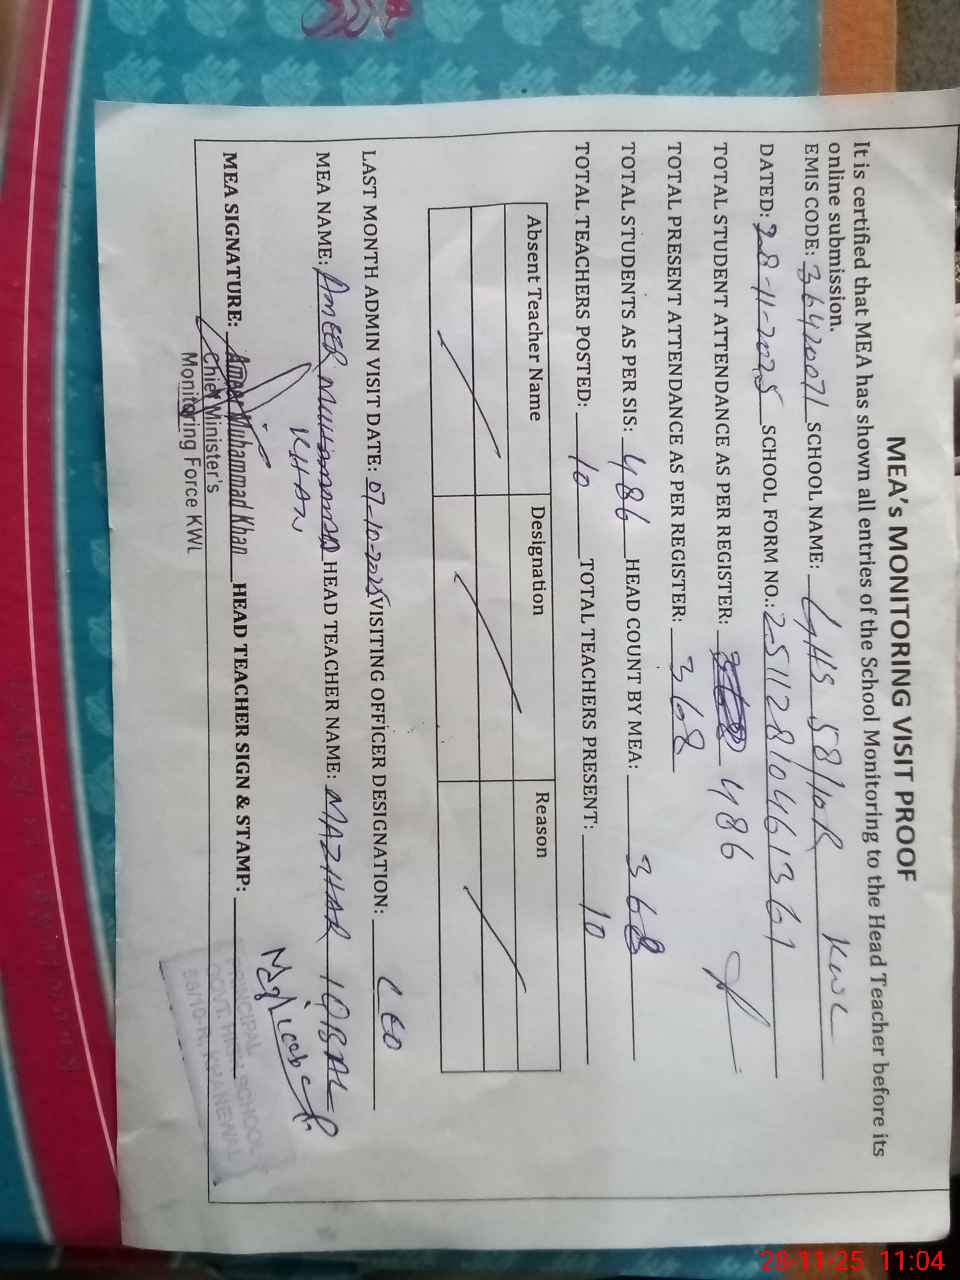 MEA's MONITORING VISIT PROOF
It is certified that MEA has shown all entries of the School Monitoring to the Head Teacher before its
online submission.
EMIS CODE: 36420071 SCHOOL NAME: GHS 58/10R KWL
DATED: 28-11-2025 SCHOOL FORM NO.: 25112810461361
TOTAL STUDENT ATTENDANCE AS PER REGISTER: 486
TOTAL PRESENT ATTENDANCE AS PER REGISTER: 368
TOTAL STUDENTS AS PER SIS: 486 HEAD COUNT BY MEA: 368
TOTAL TEACHERS POSTED: 10 TOTAL TEACHERS PRESENT: 10
Absent Teacher Name Designation Reason
LAST MONTH ADMIN VISIT DATE: 07-10-2025 VISITING OFFICER DESIGNATION: CEO
MEA NAME: AMEER MUHAMMAD HEAD TEACHER NAME: MAZHAR IQBAL
KHAN
MEA SIGNATURE: Ameer Muhammad Khan HEAD TEACHER SIGN & STAMP:
Chief Minister's
Monitoring Force KWL
PRINCIPAL
GOVT. HIGH SCHOOL
58/10-R, KHANEWAL
28-11-25 11:04